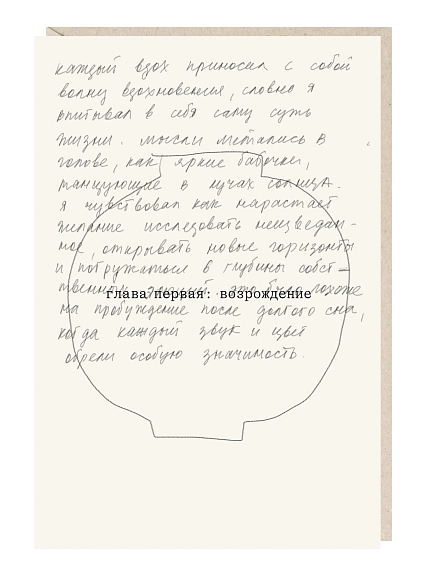 каждый вдох приносил с собой
волну вдохновения, словно я
впитывал в себя саму суть
жизни. мысли метались в
голове, как яркие бабочки,
танцующие в лучах солнца.
я чувствовал как нарастает
желание исследовать неизведан-
ное, открывать новые горизонты
и погружаться в глубины собст-
твенных это было похоже
глава первая: возрождение
на пробуждение после долгого сна,
когда каждый звук и цвет
обрели особую значимость.